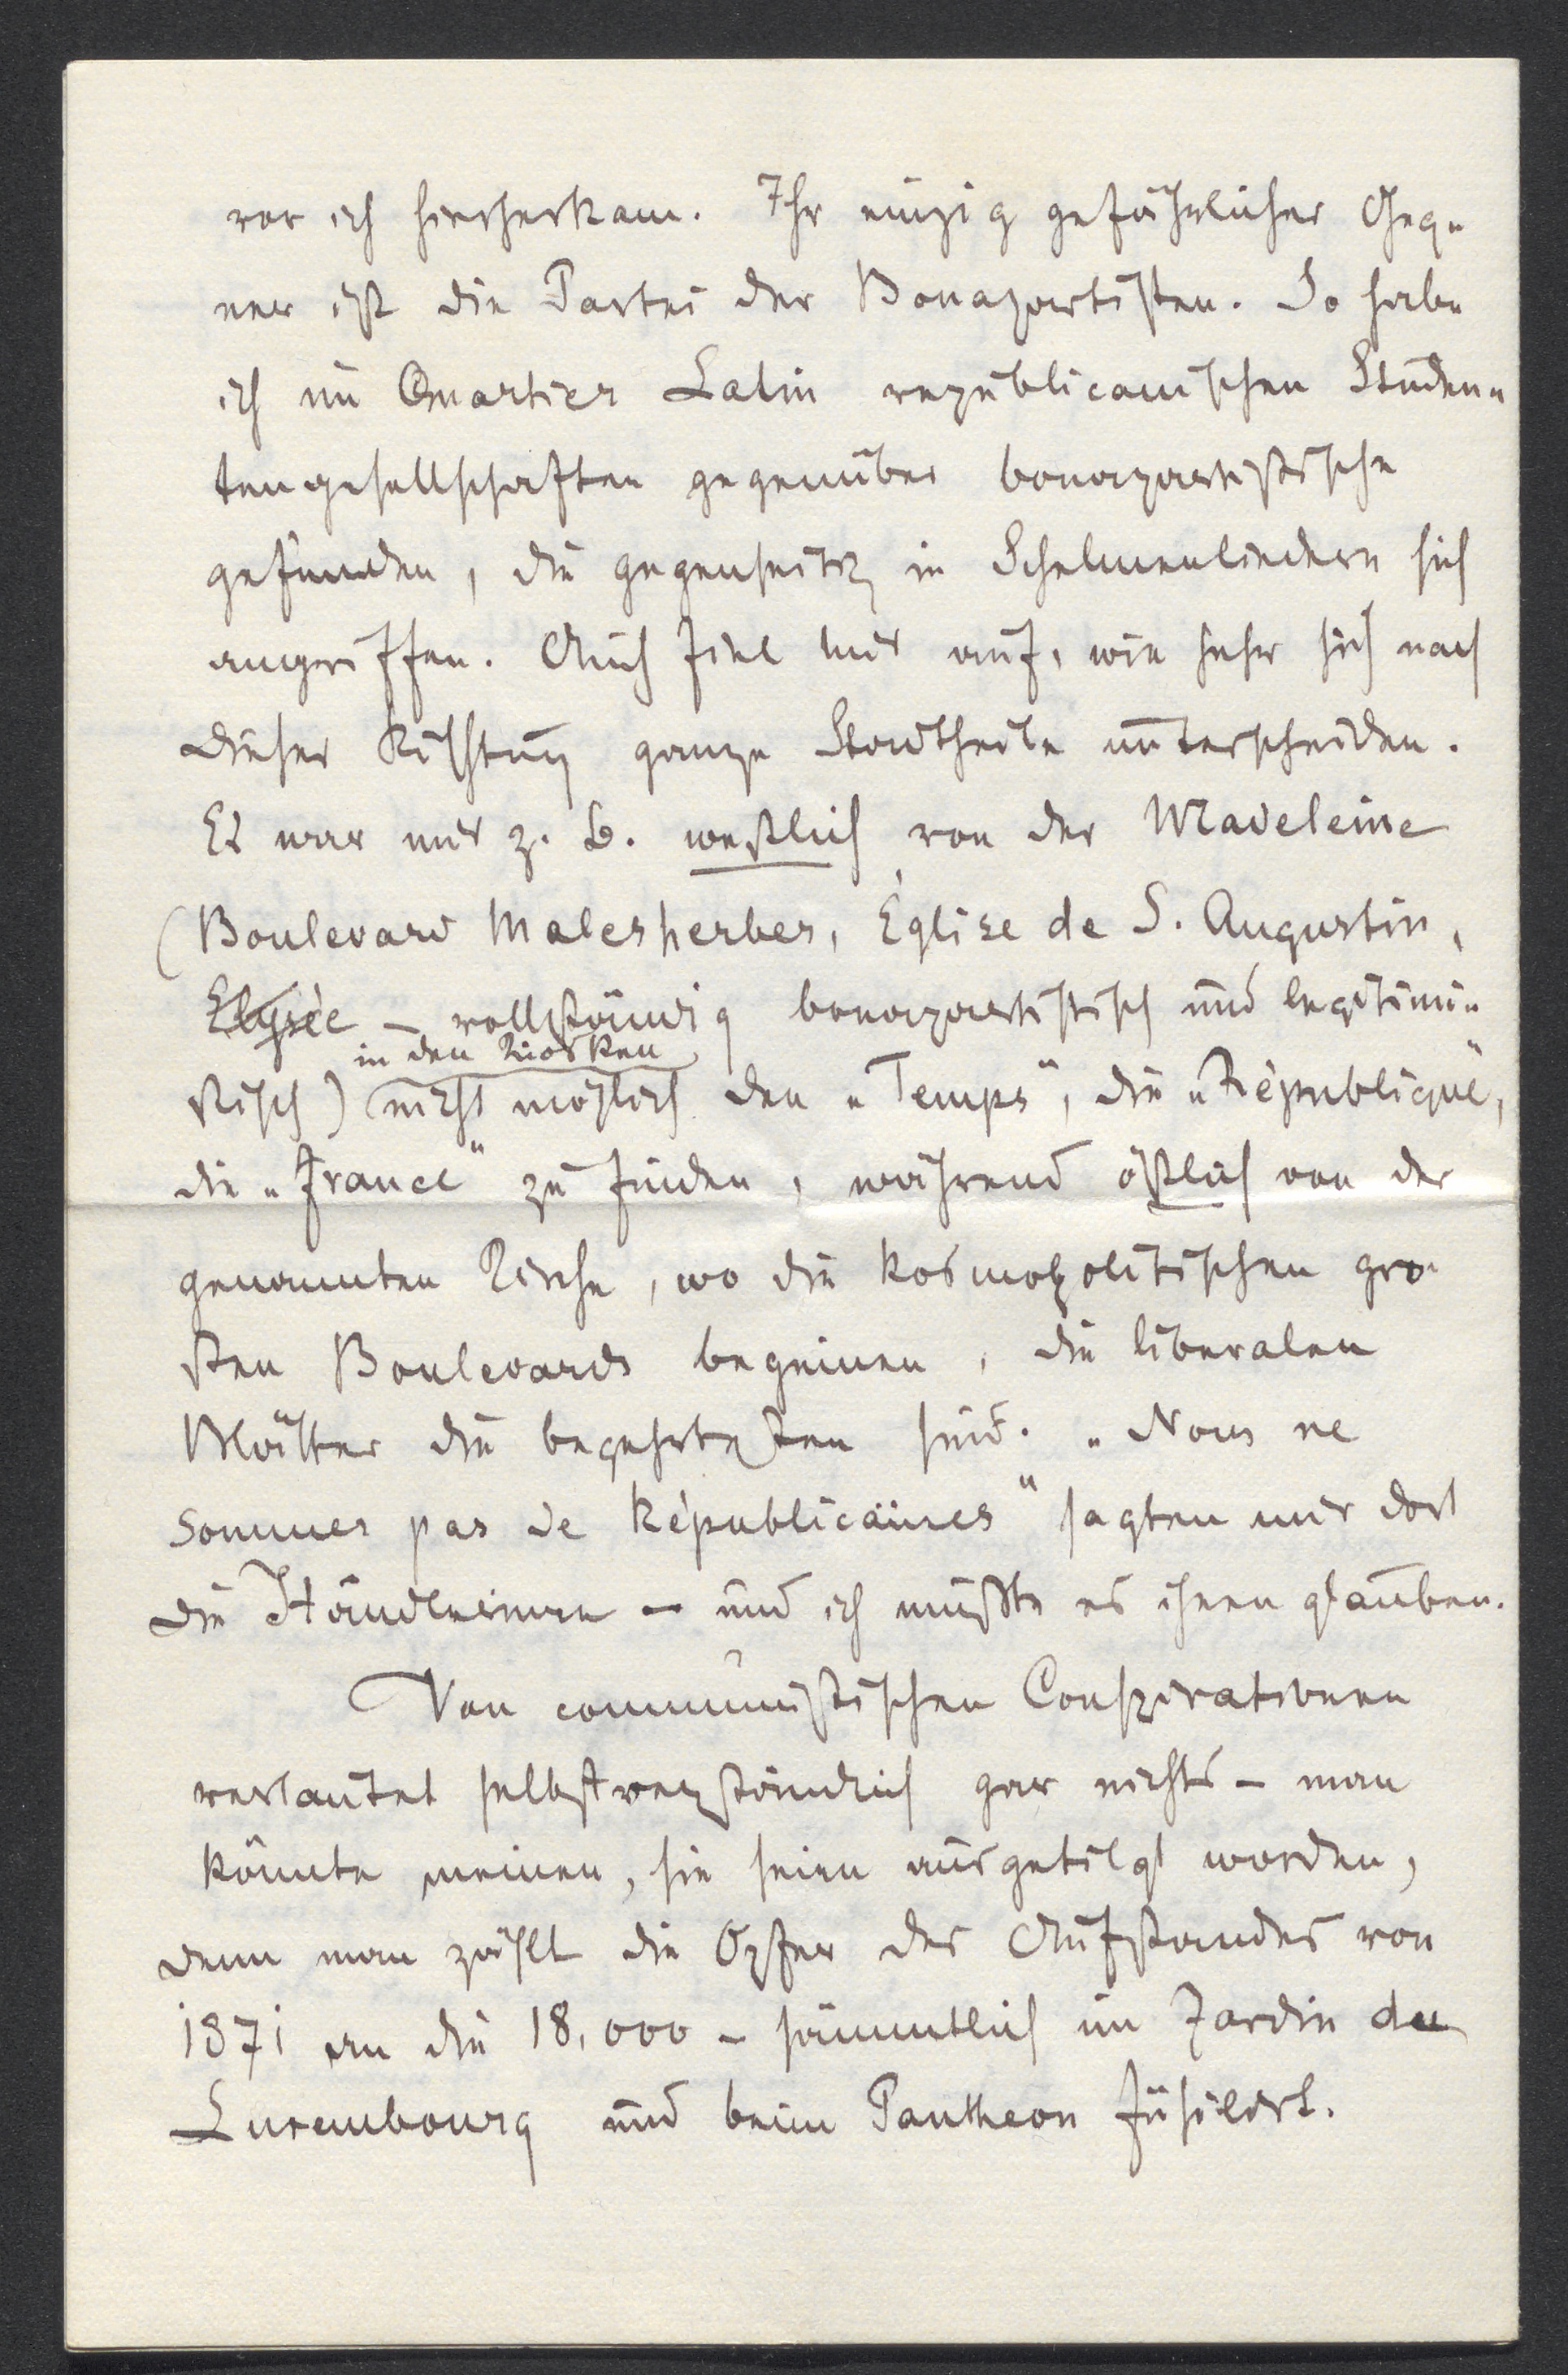 vor ich hierherkam. Ihr einzig gefährlicher Geg-
ner ist die Partei der Bonapartisten. So habe
ich im Quartier Latin republicanischen Studen-
tengesellschaften gegenüber bonapartistische
gefunden, die gegenseitig in Schelmenliedern sich
angriffen. Auch fiel mir auf, wie sehr sich nach
dieser Richtung ganze Stadtheile unterscheiden.
Es war mir z. B. westlich von der Madeleine
(Boulevard Malesherbes, Église de S. Augustin,
Elysée – vollständig bonapartistisch und legitimi-
in den Kiosken
stisch) nicht möglich den „Temps“, die „République“,
die „France“ zu finden, während östlich von der
genannten Kirche, wo die kosmopolitischen gro-
ßen Boulevards beginnen, die liberalen
Blätter die begehrtesten sind. „Nous ne
sommes pas de Républicaines“ sagten mir dort
die Händlerinnen – und ich mußte es ihnen glauben.
Von communistischen Conspirationen
verlautet selbstverständlich gar nichts – man
könnte meinen, sie seien ausgetilgt worden,
denn man zählt die Opfer des Aufstandes von
1871 an die 18,000 – sämmtlich im Jardin du
Luxembourg und beim Pantheon füsilirt.